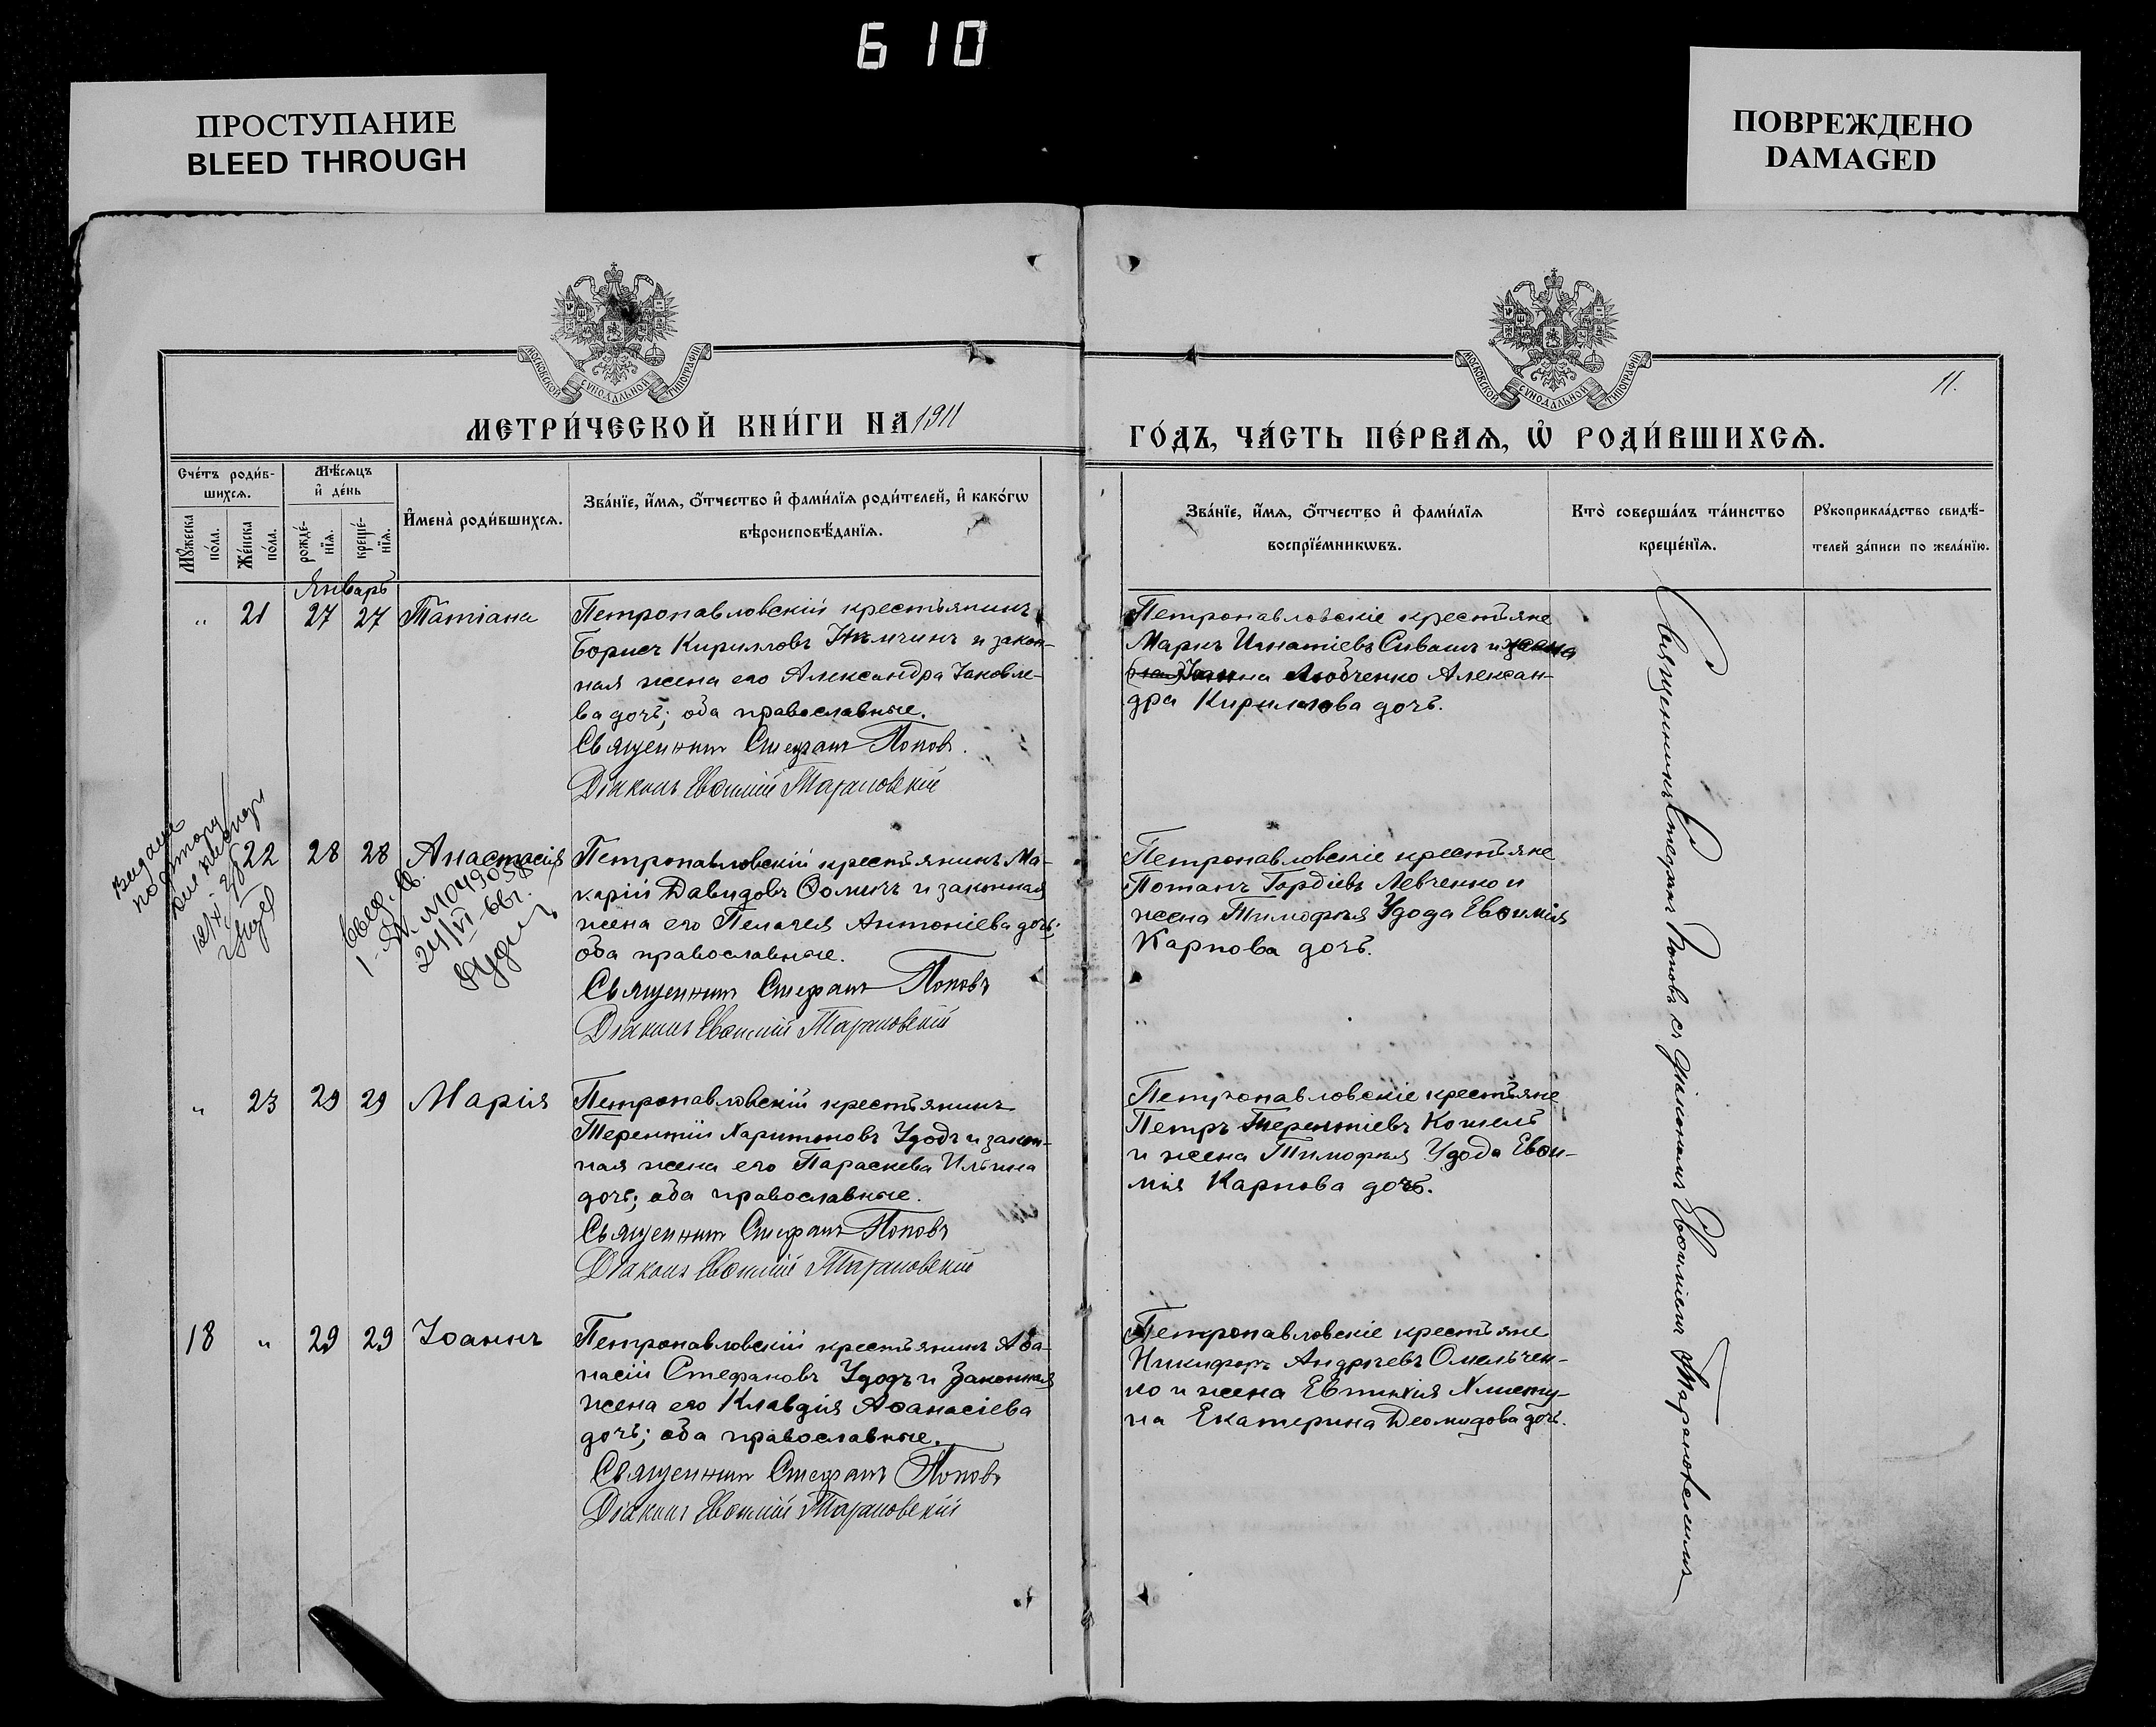 610
ПРОСТУПАНИЕ
BLEED THROUGH
ПОВРЕЖДЕНО
DAMAGED
МОСКОВСКОЙ СУНОДАЛЬНОЙ ТИПОГРАФІИ
МОСКОВСКОЙ СУНОДАЛЬНОЙ ТИПОГРАФІИ
11.
МЕТРИ́ЧЕСКОЙ КНИ́ГИ НА 1911
ГО́ДЪ, ЧА́СТЬ ПЕ́РВАѦ, Ѡ҆ РОДИ́ВШИХСѦ.
Сче́тъ роди́в-
шихсѧ.
Мꙋ́жеска
по́ла.
Же́нска
по́ла.
Мѣ́сѧцъ
и҆ де́нь
рожде́-
нїѧ.
креще́-
нїѧ.
И҆мена̀ роди́вшихсѧ.
Зва́нїе, и҆́мѧ, ѻ҆́тчество и҆ фами́лїѧ роди́телей, и҆ како́гѡ
вѣроисповѣ́данїѧ.
Зва́нїе, и҆́мѧ, ѻ҆́тчество и҆ фами́лїѧ
воспрїе́мникѡвъ.
Кто̀ соверша́лъ та́инство
креще́нїѧ.
Рꙋкоприкла́дство свидѣ́-
телей за́писи по жела́нїю.
Январь
" 21 27 27 Татіана
Петропавловскій крестьянинъ
Борисъ Кирилловъ Нѣмчинъ и закон-
ная жена его Александра Іаковле-
ва дочь; оба православные.
Священникъ Стефанъ Поповъ.
Діаконъ Евѳимій Тарановскій
Петропавловскіе крестьяне
Маркъ Игнатіевъ Сиваш и жена
Любченко Алексан-
дра Кириллова дочь.
22 28 28 Анастасія
Петропавловскій крестьянинъ Ма-
карій Давидовъ Ѳоминъ и законная
жена его Пелагея Антоніева дочь;
оба православные.
Священникъ Стефанъ Поповъ
Діаконъ Евѳимій Тарановскій
Петропавловскіе крестьяне
Потапъ Гордіевъ Левченко и
жена Тимофея Удода Евѳимія
Карпова дочь.
24/VI-66г.
" 23 29 29 Марія
Петропавловскій крестьянинъ
Терентій Харитоновъ Удодъ и закон-
ная жена его Параскева Ильина
дочь; оба православные.
Священникъ Стефанъ Поповъ
Діаконъ Евѳимій Тарановскій
Петропавловскіе крестьяне
Петръ Терентіевъ Кошель
и жена Тимофея Удода Евѳи-
мія Карпова дочь.
18 " 29 29 Іоаннъ
Петропавловскій крестьянинъ Аѳа-
насій Стефановъ Удодъ и законная
жена его Клавдія Аѳанасіева
дочь; оба православные.
Священникъ Стефанъ Поповъ
Діаконъ Евѳимій Тарановскій
Петропавловскіе крестьяне
Никифоръ Андреевъ Омельчен-
ко и жена Евтихія
на Екатерина Деомидова дочь.
Священникъ Стефанъ Поповъ съ діакономъ Евѳиміемъ Тарановскимъ